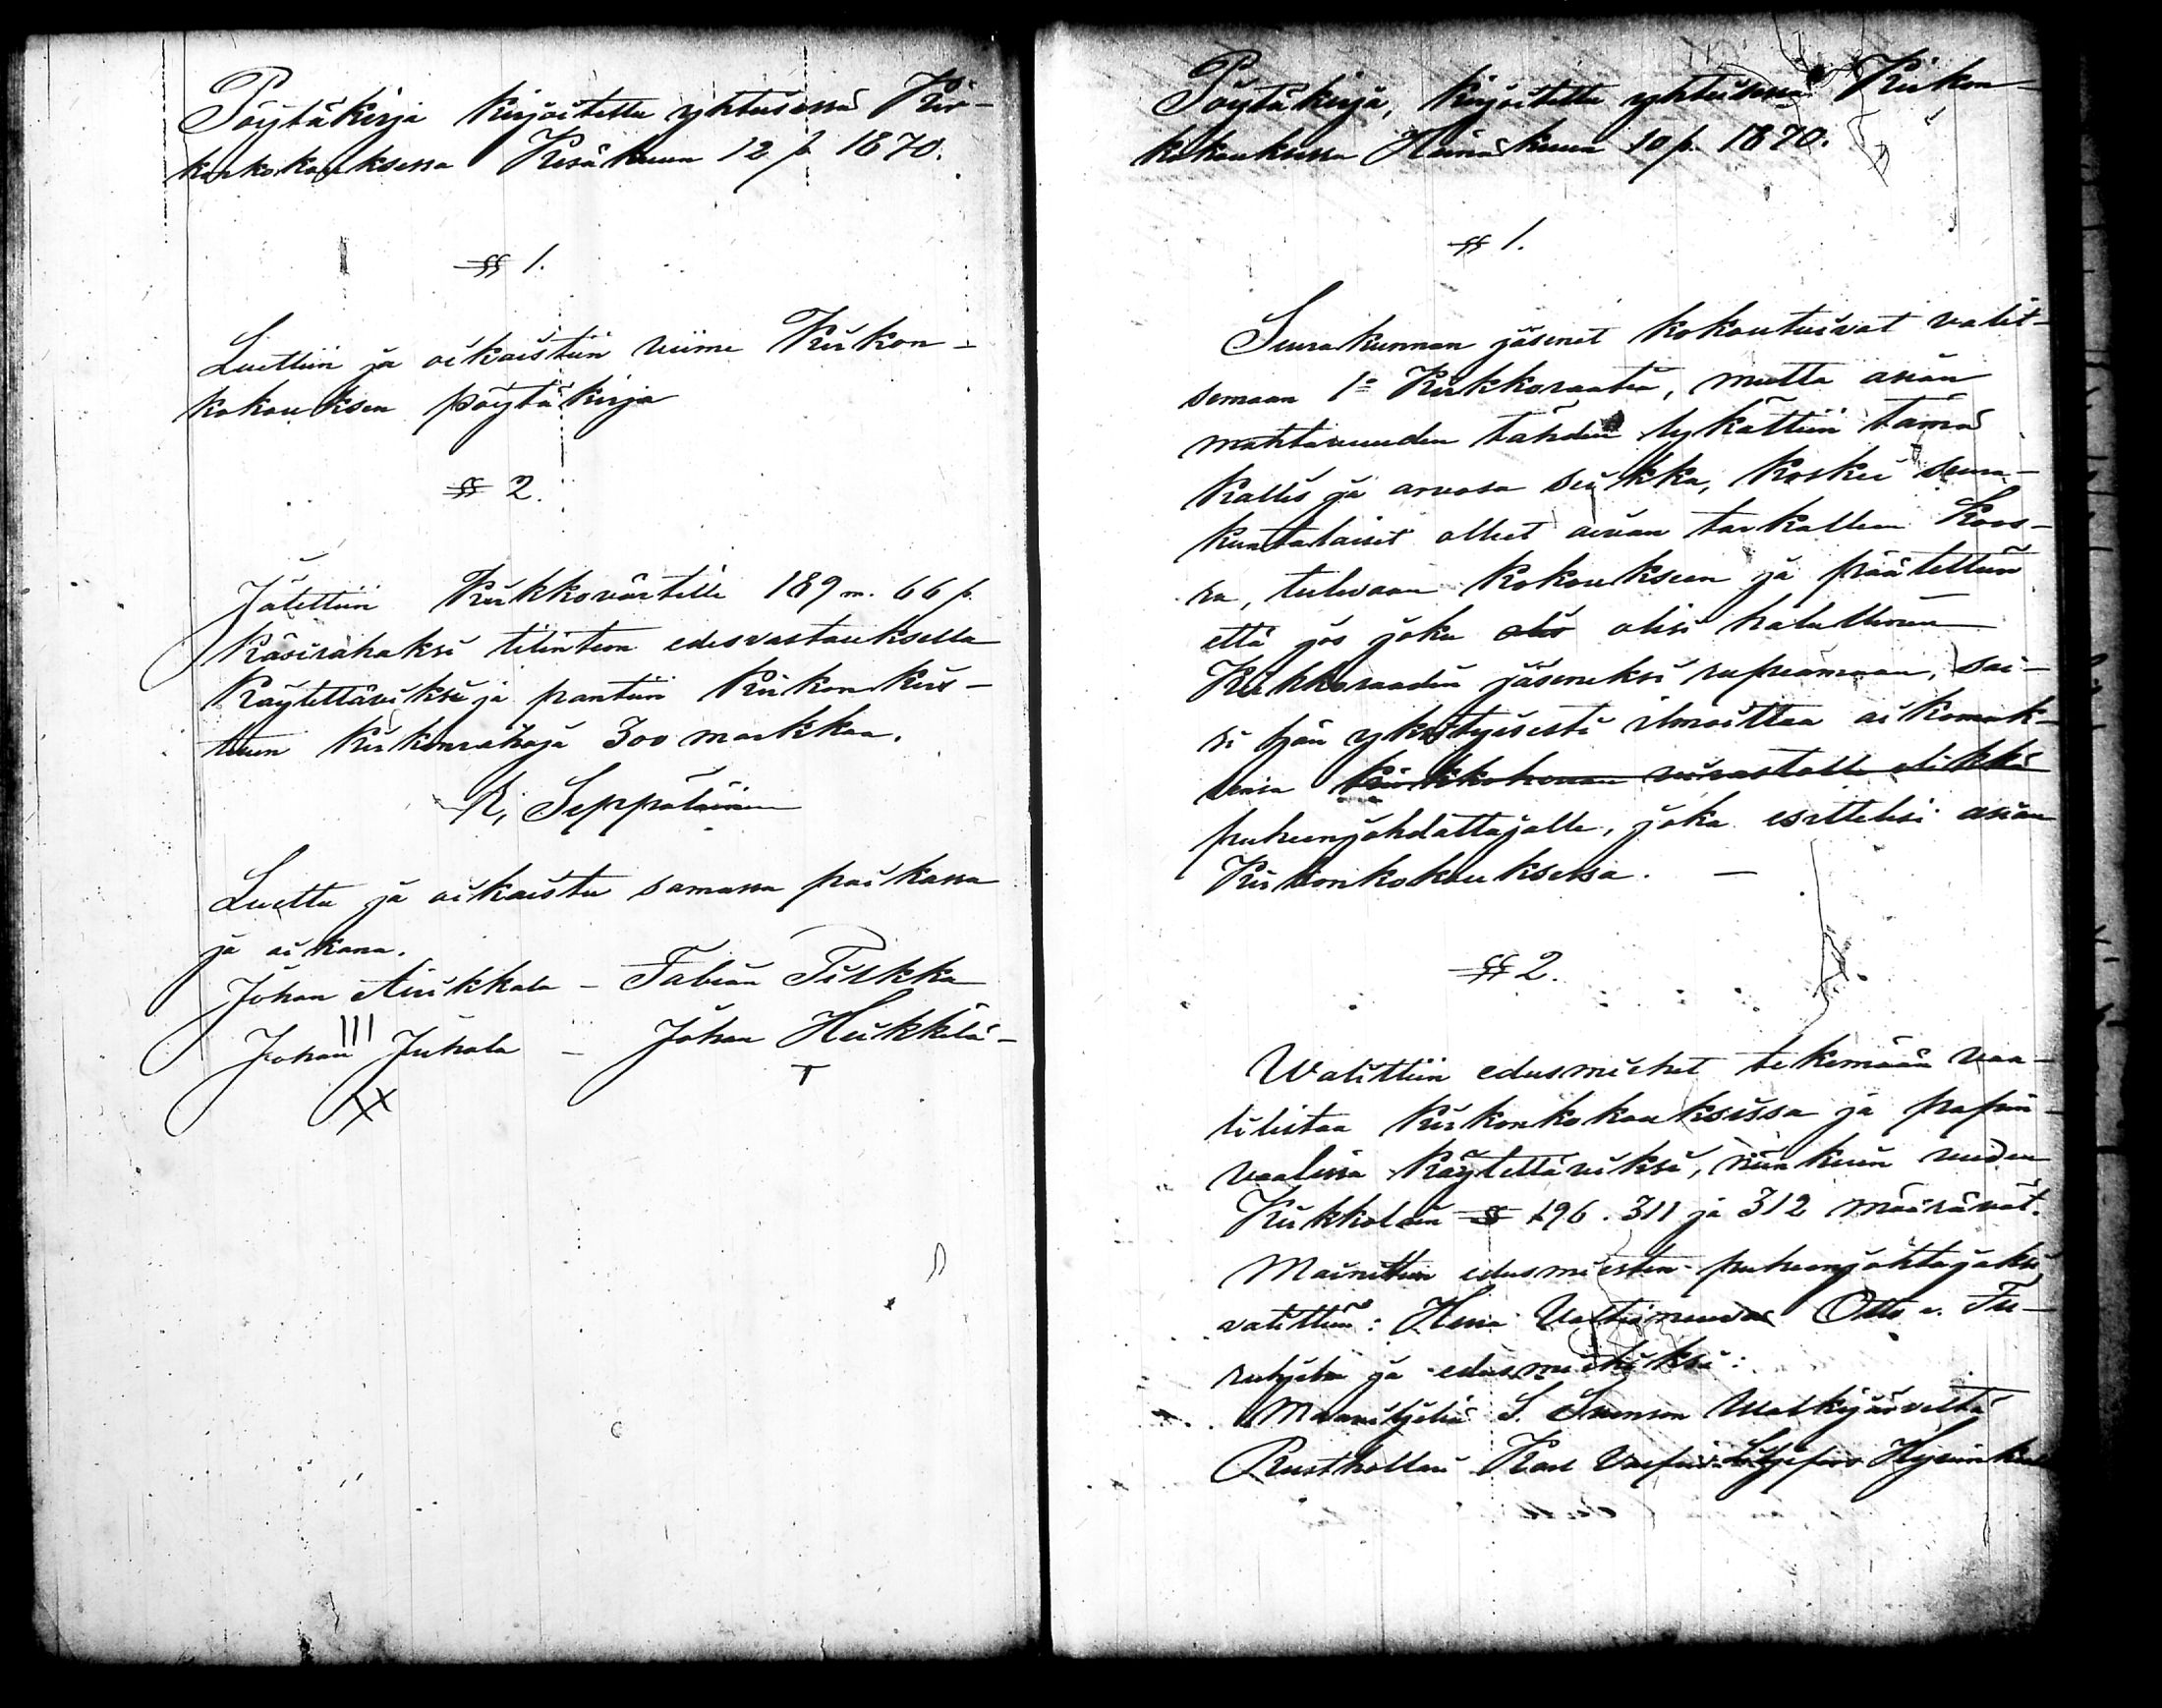 Pöytäkirja kirjoitettu yhteisessä Kir-
konkokouksessa Kesäkuun 12 p. 1870.
§§ 1.
Luettiin ja oikaistiin viime Kirkon-
kokouksen pöytäkirja
§§ 2.
Jätettiin Kirkkovärtille 189 m. 66 p.
Käsirahaksi tilinteon edesvastauksella
Käytettäviksi ja pantiin Kirkon kirs-
tuun Kirkonrahoja 300 markkaa.
K. Seppäläinen
Luettu ja oikaistu samassa paikassa
ja aikana.
Johan Anikkala - Fabian Pilkka
III
Johan Juhola - Johan Heikkilä -
XX T
Pöytäkirja, kirjoitettu yhteisessä Kirkon-
kokouksessa Heinäkuun 10 p. 1870.
§§ 1.
Seurakunnan jäsenet kokoutuivat valit-
semaan 1o Kirkkoraatia, mutta asian
mahtavuuden tähden lykättiin tämä
kallis ja arvosa seikka, koskei seura-
kuntalaiset olleet aivan tarkalleen koos-
sa, tulevaan kokoukseen ja päätettiin
että jos joku olis olisi halullinen
Kirkkoraadin jäseneksi rupeamaan, sai-
si hän yksityisesti ilmoittaa aikomuk-
sensa Kirkkoherran virastolle elikkä
puheenjohdattajalle, joka esittelisi asian
Kirkonkokouksessa. -
§§ 2.
Walittiin edusmiehet tekemään vaa-
lilistaa Kirkonkokouksissa ja papin-
vaalissa käytettäviksi, niinkuin uuden
Kirkkolain §§ 196. 311 ja 312 määräävät.
Mainittuin edusmiesten puheenjohtajaksi
valittiin: Herra Otto v. Fu-
ruhjelm ja edusmiehiksi:
Maanviljeliä S. Svenson Walkjärveltä
Rusthollari Karl